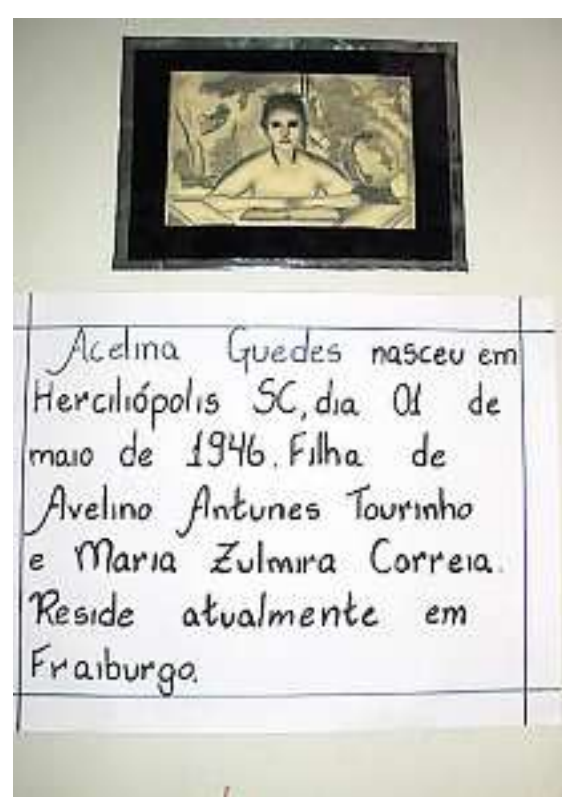 Acelina Guedes nasceu em
Herciliópolis SC, dia 01 de
maio de 1946. Filha de
Avelino Antunes Tourinho
e Maria Zulmira Correia.
Reside atualmente em
Fraiburgo.